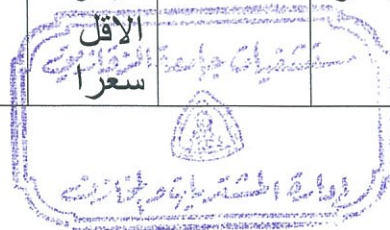 الاقل
سعرا
مستشفيات جامعة الزقازيق
إدارة المشتريات والمخازن